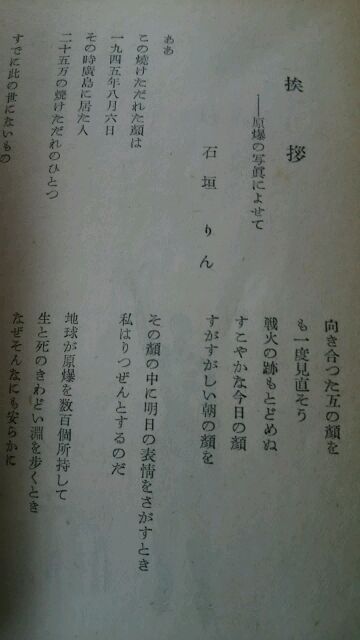 挨拶
――原爆の写眞によせて
石垣りん
ああ
この焼けただれた顔は
一九四五年八月六日
その時廣島に居た人
二十五万の焼けただれのひとつ
すでに此の世にないもの
向き合つた互の顔を
も一度見直そう
戦火の跡もとどめぬ
すこやかな今日の顔
すがすがしい朝の顔を
その顔の中に明日の表情をさがすとき
私はりつぜんとするのだ
地球が原爆を数百個所持して
生と死のきわどい淵を歩くとき
なぜそんなにも安らかに